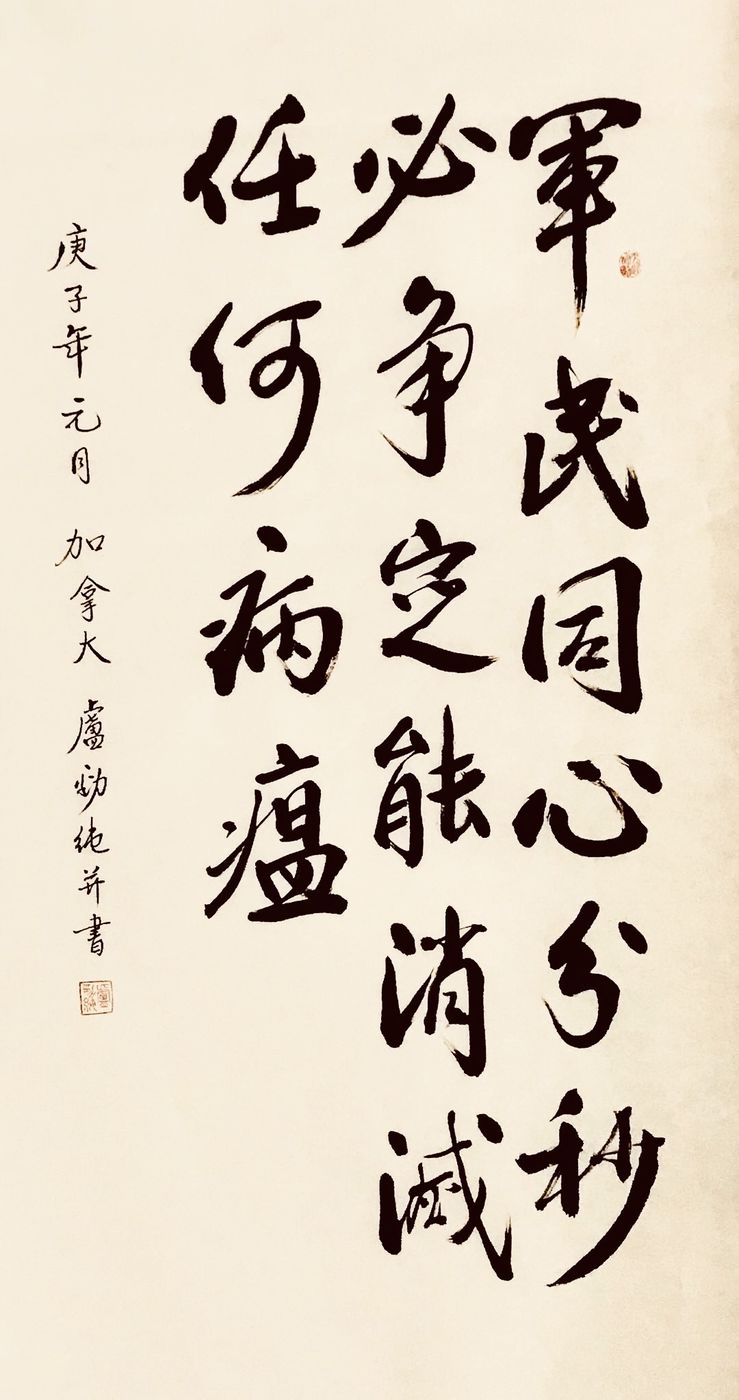 軍民同心分秒
必争定能消滅
任何病瘟
庚子年元月 加拿大 盧勁純并書